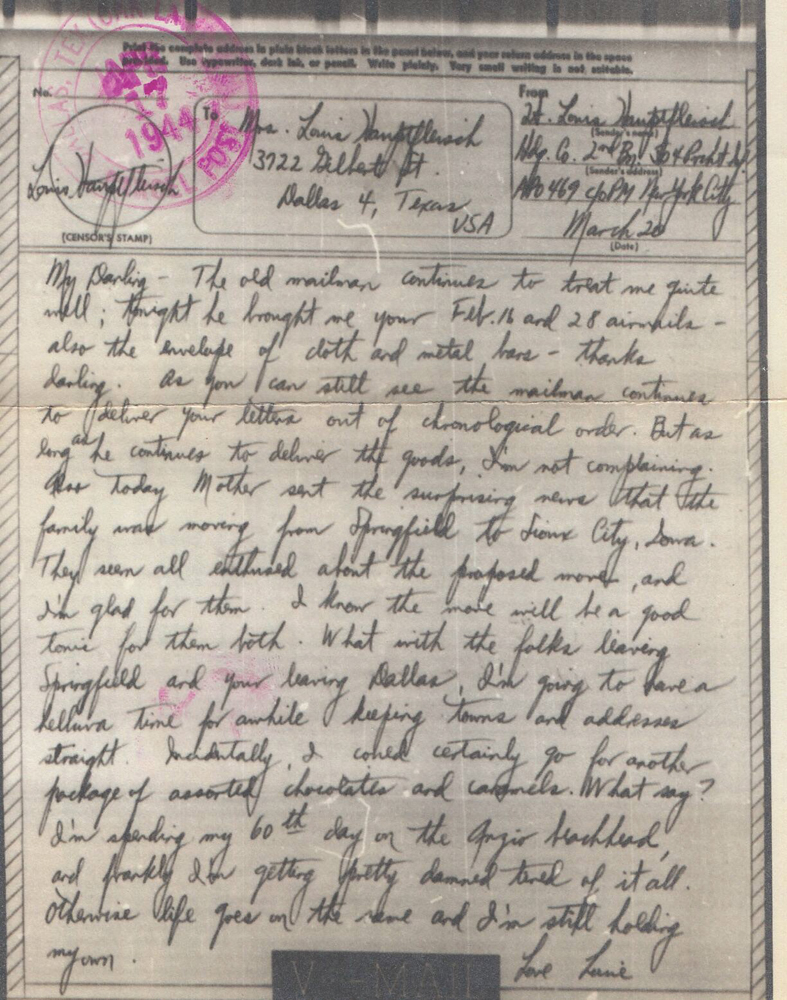 Print the complete address in plain block letters in the panel below, and your return address in the space
provided. Use typewriter, dark ink, or pencil. Write plainly. Very small writing is not suitable.
No.
To
From
Mrs. Louis Hauptfleisch
3722 Gilbert St.
Dallas 4, Texas
USA
Lt. Louis Hauptfleisch
(Sender's name)
Hdq. Co. 2nd Bn. 504 Prcht
(Sender's address)
APO 469 c/o PM New York City
March 20
(Date)
1944
Louis Hauptfleisch
(CENSOR'S STAMP)
My Darling - The old mailman continues to treat me quite
well; tonight he brought me your Feb. 16 and 28 airmails -
also the envelope of cloth and metal bars - thanks
darling. As you can still see the mailman continues
to deliver your letters out of chronological order. But as
long as he continues to deliver the goods, I'm not complaining.
Also today Mother sent the surprising news that the
family was moving from Springfield to Sioux City, Iowa.
They seem all enthused about the proposed move, and
I'm glad for them. I know the move will be a good
tonic for them both. What with the folks leaving
Springfield and your leaving Dallas, I'm going to have a
helluva time for awhile keeping towns and addresses
straight. Incidentally, I could certainly go for another
package of assorted chocolates and caramels. What say?
I'm spending my 60th day on the Anzio beachhead,
and frankly I'm getting pretty damned tired of it all.
Otherwise life goes on the same and I'm still holding
my own.
Love Louie
V-MAIL